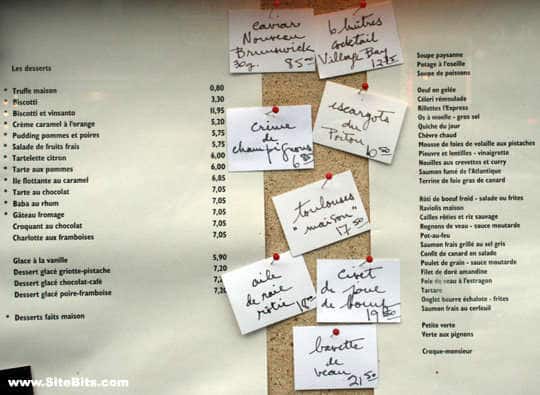 Les desserts
* Truffe maison 0,80
* Biscotti 3,30
* Biscotti et vinsanto 11,95
* Crème caramel à l'orange 5,20
* Pudding pommes et poires 5,20
* Salade de fruits frais 6,00
* Tartelette citron 6,00
* Tarte aux pommes 6,00
* Ile flottante au caramel 6,85
* Tarte au chocolat 7,05
* Baba au rhum 7,05
* Gâteau fromage 7,05
Croquant au chocolat 7,05
Charlotte aux framboises 7,05
Glace à la vanille 5,90
Dessert glacé griotte-pistache 7,20
Dessert glacé chocolat-café 7,20
Dessert glacé poire-framboise
* Desserts faits maison
caviar
Nouveau
Brunswick
30g. 85.00
6 huîtres
cocktail
Village Bay
crème
de
champignons
escargots
du
Poitou
toulouses
"maison"
17.50
aile
de raie
rôtie
Civet
de joue
de boeuf
bavette
de
veau
21.50
Soupe paysanne
Potage à l'oseille
Soupe de poissons
Oeuf en gelée
Céleri rémoulade
Rillettes l'Express
Os à moelle - gros sel
Quiche du jour
Chèvre chaud
Mousse de foies de volaille aux pistaches
Pieuvre et lentilles - vinaigrette
Nouilles aux crevettes et curry
Saumon fumé de l'Atlantique
Terrine de foie gras de canard
Rôti de boeuf froid - salade ou frites
Raviolis maison
Cailles rôties et riz sauvage
Rognons de veau - sauce moutarde
Pot-au-feu
Saumon frais grillé au sel gris
Confit de canard en salade
Poulet de grain - sauce moutarde
Filet de doré amandine
Foie de veau à l'estragon
Tartare
Onglet beurre échalote - frites
Saumon frais au cerfeuil
Petite verte
Verte aux pignons
Croque-monsieur
www.SiteBits.com